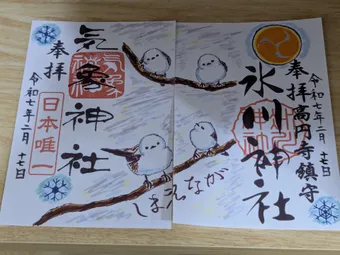 令和七年二月十七日
奉拝 高円寺鎮守
氷川神社
しまえなが
気象神社
奉拝
日本唯一
令和七年二月十七日